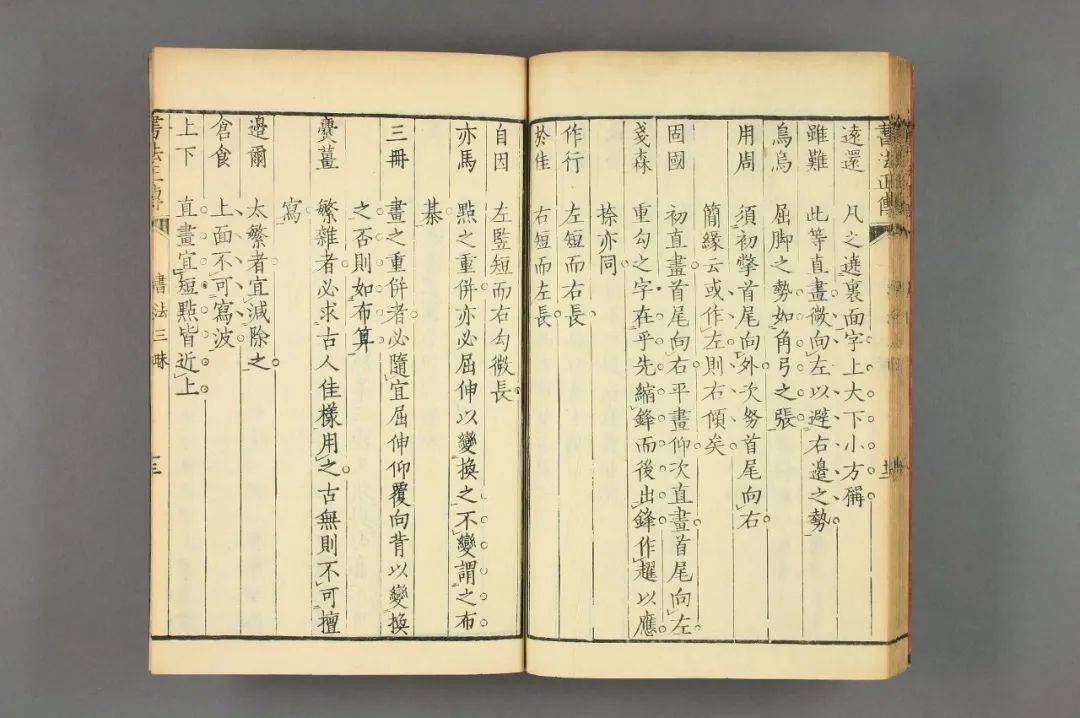 遠還 凡之遶裏面字上大下小方稱
雖難 此等直畫微向左以遜右邊之勢
鳥烏 屈脚之勢如角弓之張
用周 須初撆首尾向外次努首尾向右
簡緣云或作左則右傾矣
固國 初直畫首尾向右平畫仰次直畫首尾向左
戔森 重勾之字在乎先縮鋒而後出鋒作趯以應
捺亦同
作行 左短而右長
於佳 右短而左長
自因 左監短而右勾微長
亦馬 點之重併亦必屈伸以變換之不變謂之布
棊
三冊 畫之重併者必隨宜屈伸仰覆向背以變換
之否則如布算
爨薑 繁雜者必求古人佳樣用之古無則不可擅
寫
邉爾 太繁者宜減除之
倉食 上面不可寫波
上下 直畫宜短點皆近上
書法正傳 書法三昧 十三